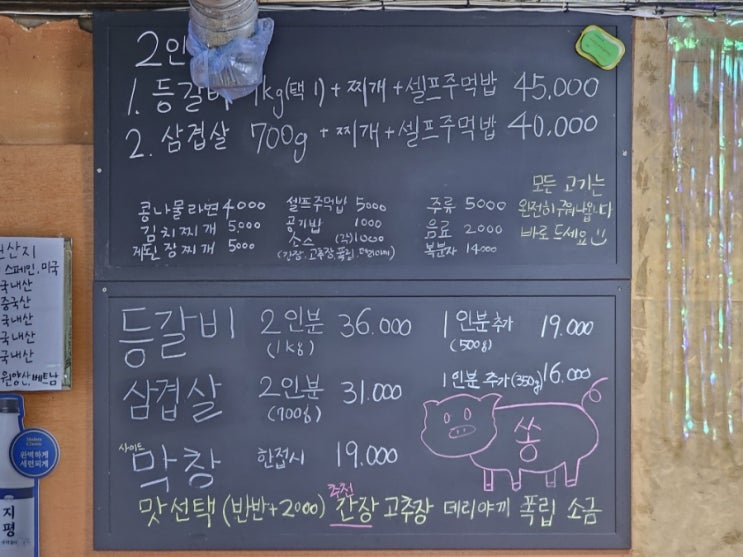 2인
1. 등갈비 1kg(택1)+찌개+셀프주먹밥 45,000
2. 삼겹살 700g +찌개+셀프주먹밥 40,000
콩나물라면 4000 셀프주먹밥 5000 주류 5000
김치찌개 5000 공기밥 1000 음료 2000
차돌된장찌개 5000 소스 (각)1000 복분자 14000
(간장,고추장,폭립,데리야끼)
모든 고기는
완전히 구워나옵니다
바로 드세요
등갈비 2인분 36.000 1인분 추가 19.000
(1kg) (500g)
삼겹살 2인분 31.000 1인분 추가(350g) 16.000
(700g)
사이드
막창 한접시 19.000
쏭
추천
맛선택 (반반+2000) 간장 고추장 데리야끼 폭립 소금
원산지
스페인,미국
국내산
중국산
국내산
국내산
국내산
원양산,베트남
완벽하게
세련되게
지평